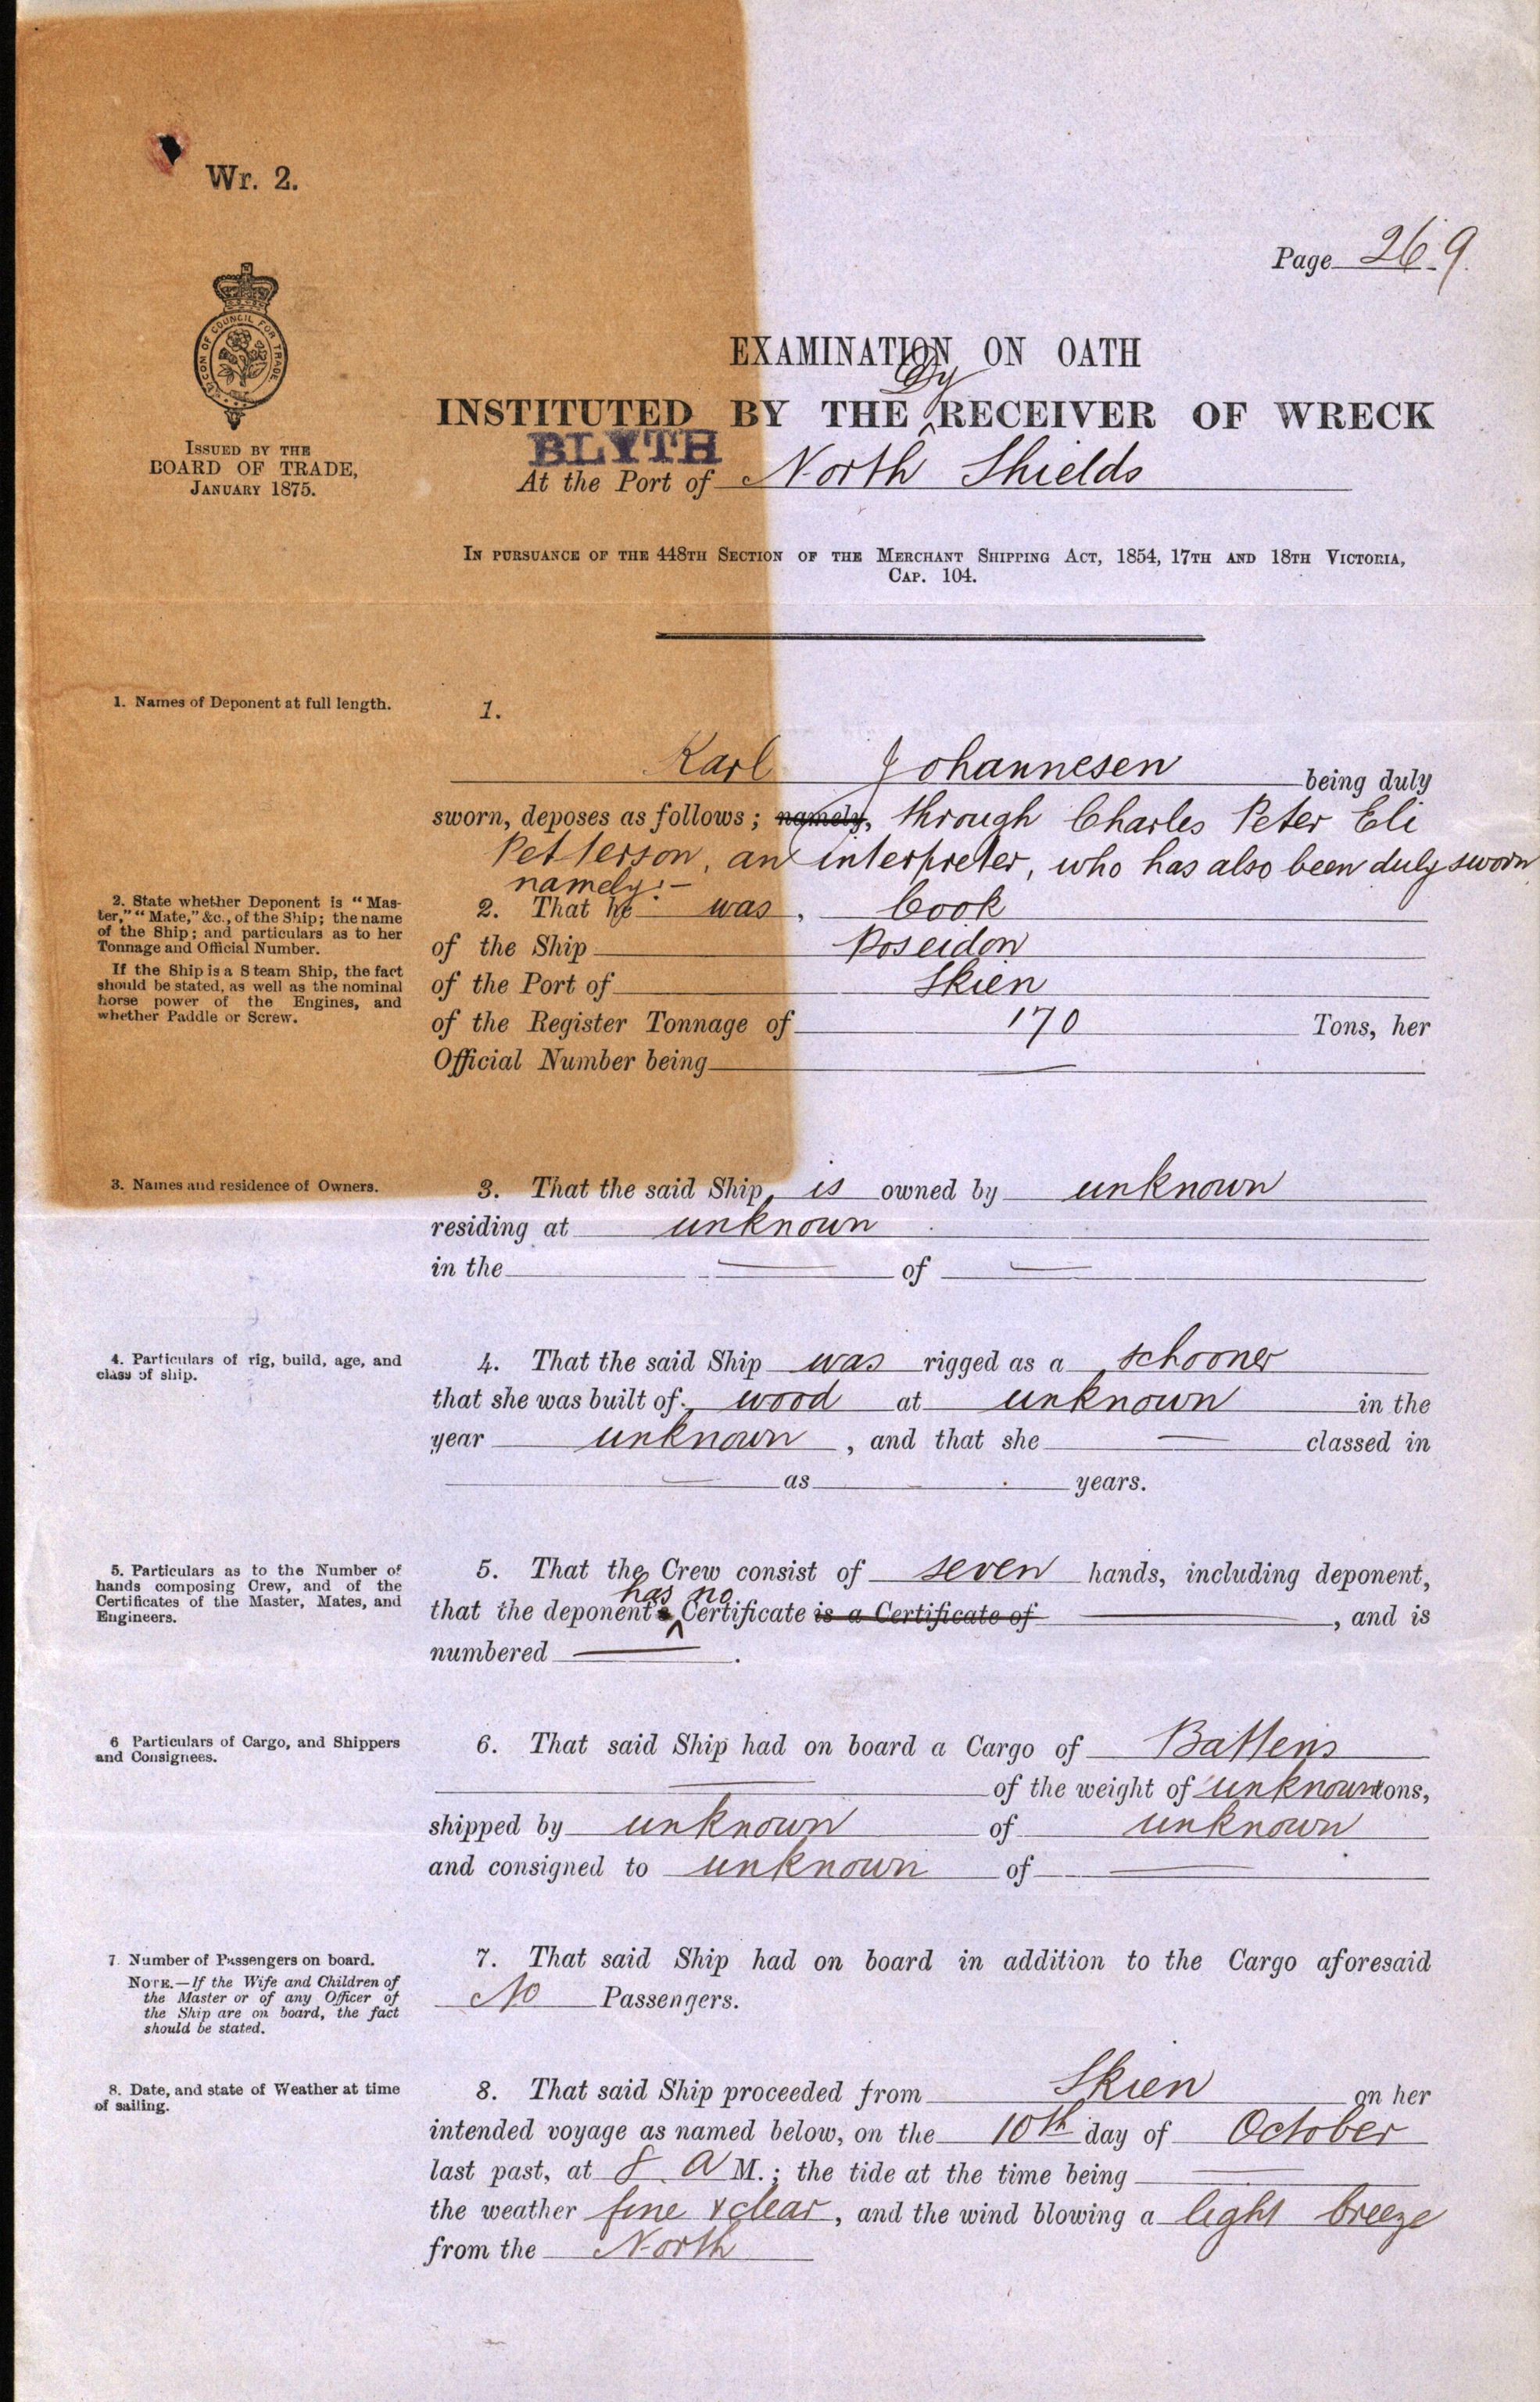 Wr. 2.
Page 269.
COM OF COUNCIL FOR TRADE
ISSUED BY THE
BOARD OF TRADE,
JANUARY 1875.
EXAMINATION ON OATH
Dy
INSTITUTED BY THE ^ RECEIVER OF WRECK
BLYTH
At the Port of North Shields
IN PURSUANCE OF THE 448TH SECTION OF THE MERCHANT SHIPPING ACT, 1854, 17TH AND 18TH VICTORIA,
CAP. 104.
1. Names of Deponent at full length.
1.
Karl Johannesen being duly
sworn, deposes as follows; namely, through Charles Peter Eli
Petterson, an interpreter, who has also been duly sworn
namely:-
2. State whether Deponent is "Mas-
ter," "Mate," &c., of the Ship; the name
of the Ship; and particulars as to her
Tonnage and Official Number.
If the Ship is a Steam Ship, the fact
should be stated, as well as the nominal
horse power of the Engines, and
whether Paddle or Screw.
2. That he was, Cook
of the Ship Poseidon
of the Port of Skien
of the Register Tonnage of 170 Tons, her
Official Number being —
3. Names and residence of Owners.
3. That the said Ship is owned by unknown
residing at unknown
in the — of —
4. Particulars of rig, build, age, and
class of ship.
4. That the said Ship was rigged as a schooner
that she was built of wood at unknown in the
year unknown, and that she — classed in
— as — years.
5. Particulars as to the Number of
hands composing Crew, and of the
Certificates of the Master, Mates, and
Engineers.
5. That the Crew consist of seven hands, including deponent,
has no
that the deponent's ^ Certificate is a Certificate of —, and is
numbered —.
6 Particulars of Cargo, and Shippers
and Consignees.
6. That said Ship had on board a Cargo of Battens
— of the weight of unknown tons,
shipped by unknown of unknown
and consigned to unknown of —
7. Number of Passengers on board.
NOTE.—If the Wife and Children of
the Master or of any Officer of
the Ship are on board, the fact
should be stated.
7. That said Ship had on board in addition to the Cargo aforesaid
No Passengers.
8. Date, and state of Weather at time
of sailing.
8. That said Ship proceeded from Skien on her
intended voyage as named below, on the 10th day of October
last past, at 8 a M.; the tide at the time being —
the weather fine & clear, and the wind blowing a light breeze
from the North